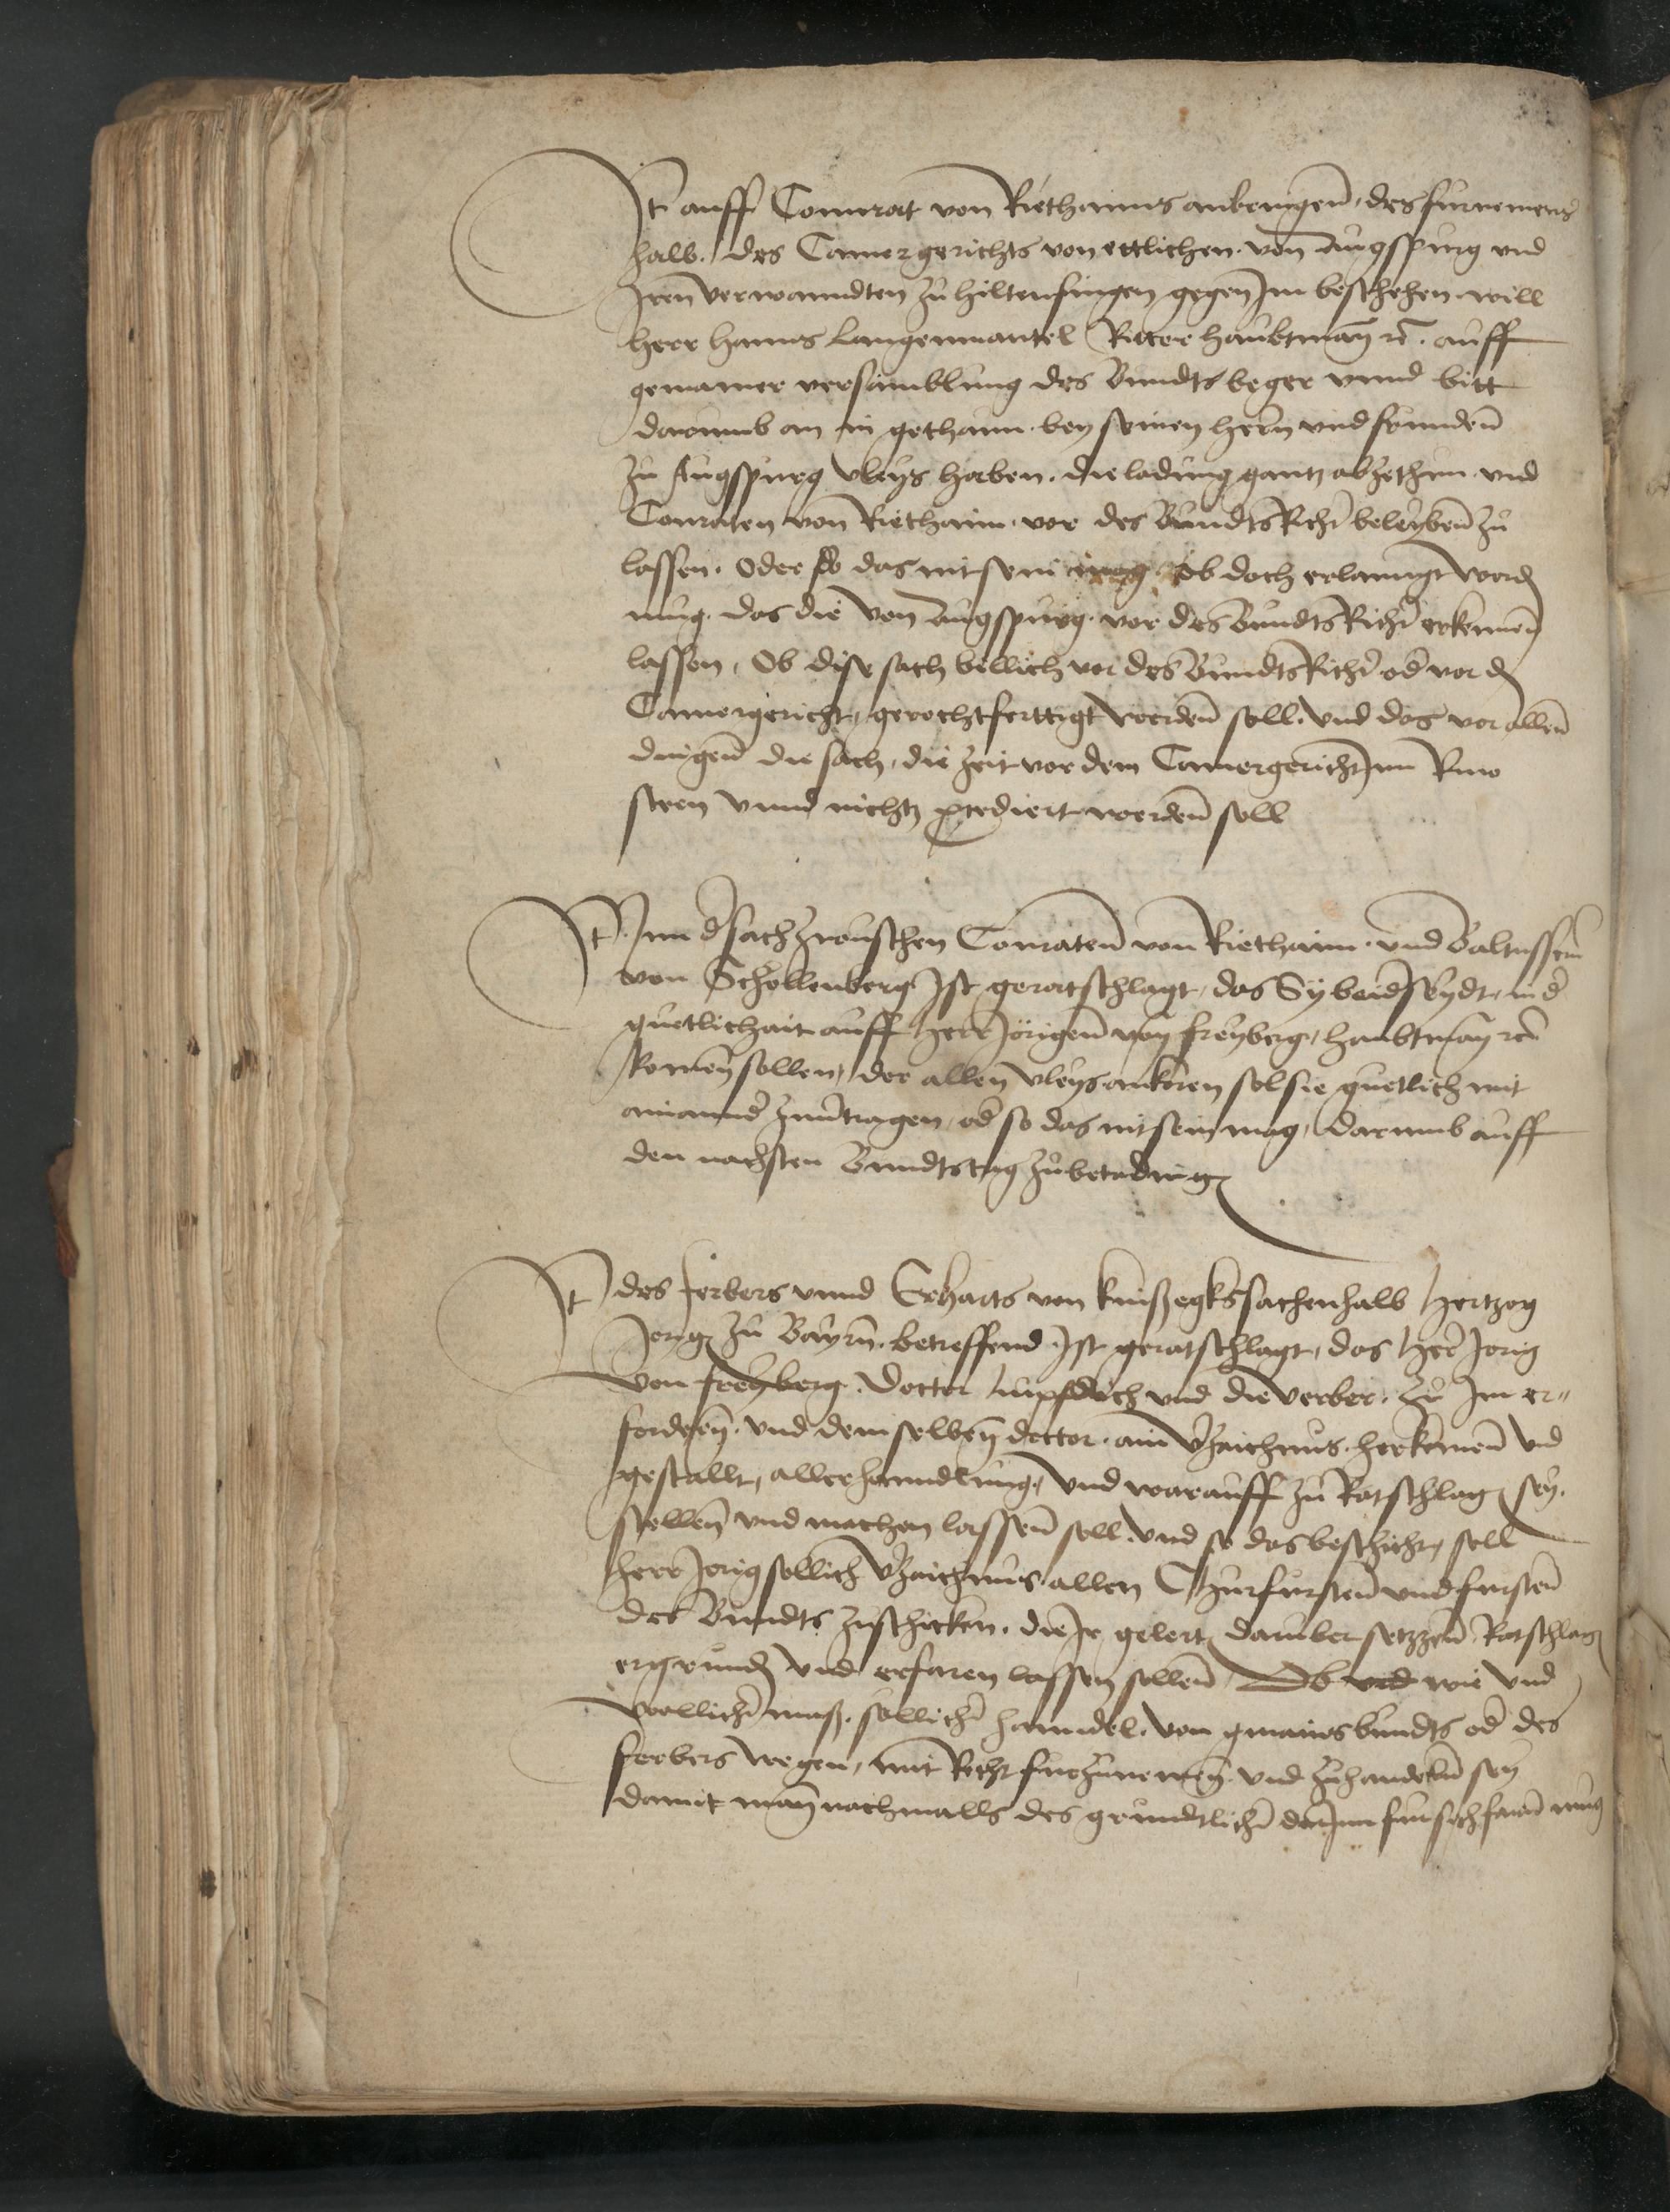 It auff Connrat von Riethaims anbringen, des furnemens
halb, des Camergerichts von ettlichen von Augspurg vnd
Iren verwanndten zu hiltenfingen gegen Im beschehen will
herr hanns Langenmantel Ritter haubtman rc. auff
gemainer versamblung des Bundts beger vnnd bitt
darumb an in gethann bey seinen hern vnd frunden
zu Augspurg vleys haben, die ladung gantz abzethun vnd
Conraten von Riethaim vor des Bundts Richt beleyben zu
lassen. Oder so das nit sein mag ob doch erlanngt werd
mug, das die von Augspurg vor des Bundts Richt erkennen
lassen, Ob dise sach billich vor des Bundts Richt od vor d
Camergericht, gerechtferttigt werden soll, vnd das vor allen
dingen die sach, die zeit vor dem Camergericht Inn Rwo
steen vnnd nichtz procediert werden soll
It Inn d sach zwuschen Conraten von Riethaim vnd Baltassern
von Schellenberg Ist geratschlagt, das Sy baid seydt, in d
guetlichait auff herr Jörigen von freyberg, haubtman rc
komen sollen, der allen vleys ankeren sol sie guetlich mit
ainannd zuuertragen, od so das nit sein mag, darumb auff
den nachsten Bundtstag zubetading
It des ferbers vnnd Erharts von kinßegks sachenhalb Hertzog
Jorig zu Bayrn betreffend, Ist geratschlagt, das Her Jorig
von freyberg, doctor lupfdich vnd die verber, zu Im er-
fordern, vnd demselben doctor, ain vzaichnus, herkomen vnd
gestallt, aller hanndlung, vnd warauff zu Ratschlag sey,
stellen vnd machen lassen soll, vnd so das beschicht, soll
herr Jorig sollich vzaichnus allen Churfursten vnd fursten
des Bundts zuschicken, die Ir gelert daruber setzzen Ratschlag
ergrund vnd erfaren lassen sollen, Ob vnd wie vnd
wellicher maß, sollicher hanndel, von gmains bundts od des
ferbers wegen, mit Recht furzunemen vnd zuhandeln sey
damit man nachmalls des grundtlicher darinn fursichfarn mug